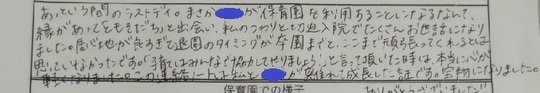 あっという間のラストディ。まさか が保育園を利用することになるなんて、
縁があって をもぎだちと出会い、私のつわりと切迫入院でたくさんお世話になり
ました。居心地が良すぎて退園のタイミングが卒園まで、ここまで頑張ってくれるとは
思っていなかったです。「育てはみんなで協力してやりましょう」と言って頂いた時は、本当に心が
軽くなりました。この連絡ノートは私と が離れて成長した証です。宝物になりました。
保育園での様子
ありがとうございました